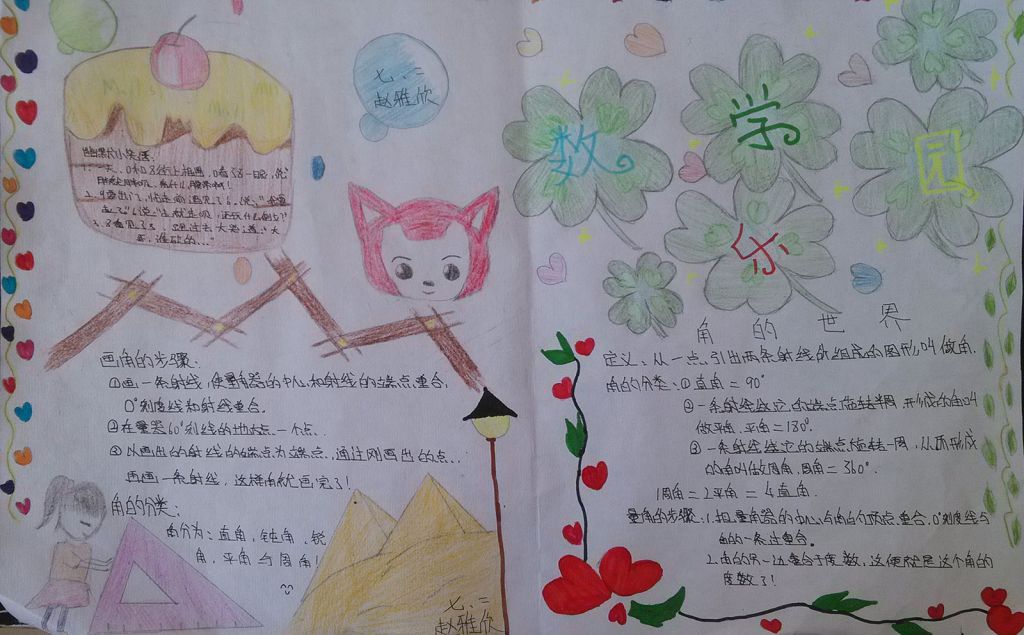 七、二
赵雅欣
数 学
园
乐
幽默大小笑话:
画角的步骤:
①画一条射线,使量角器的中心和射线的端点重合,
0°刻度线和射线重合.
②在量器60°刻线的地方点一个点.
③以画出的射线的端点为端点,通过刚画出的点,
再画一条射线,这样角就画完了!
角的分类:
角分为:直角,钝角,锐
角,平角与周角!
七、二
赵雅欣
角的世界
定义:从一点引出两条射线所组成的图形叫做角.
角的分类:①直角=90°
②一条射线绕它的端点旋转半周,形成的角叫
做平角.平角=180°.
③一条射线绕它的端点旋转一周,从所形成
的角叫做周角,周角=360°.
1周角=2平角=4直角.
量角的步骤:1.把量角器的中心与角的顶点重合,0°刻度线与
角的一条边重合.
2.角的另一边重合于度数,这便就是这个角的
度数了!